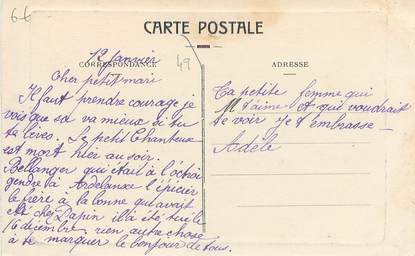 66-
CARTE POSTALE
CORRESPONDANCE
ADRESSE
12 Janvier
49
Cher petit mari
Il faut prendre courage je
vois que sa va mieux si tu
te lèves. Le petit Chanteux
est mort hier au soir.
Bellanger qui était à l'octroi
gendre à Ardelanne l'épicier
le frère à la bonne qu'avait
été chez Papin il a été tué le
16 décembre rien autre chose
à te marquer le bonjour de tous.
Ta petite femme qui
t'aime et qui voudrait
te voir Je t'embrasse
Adèle